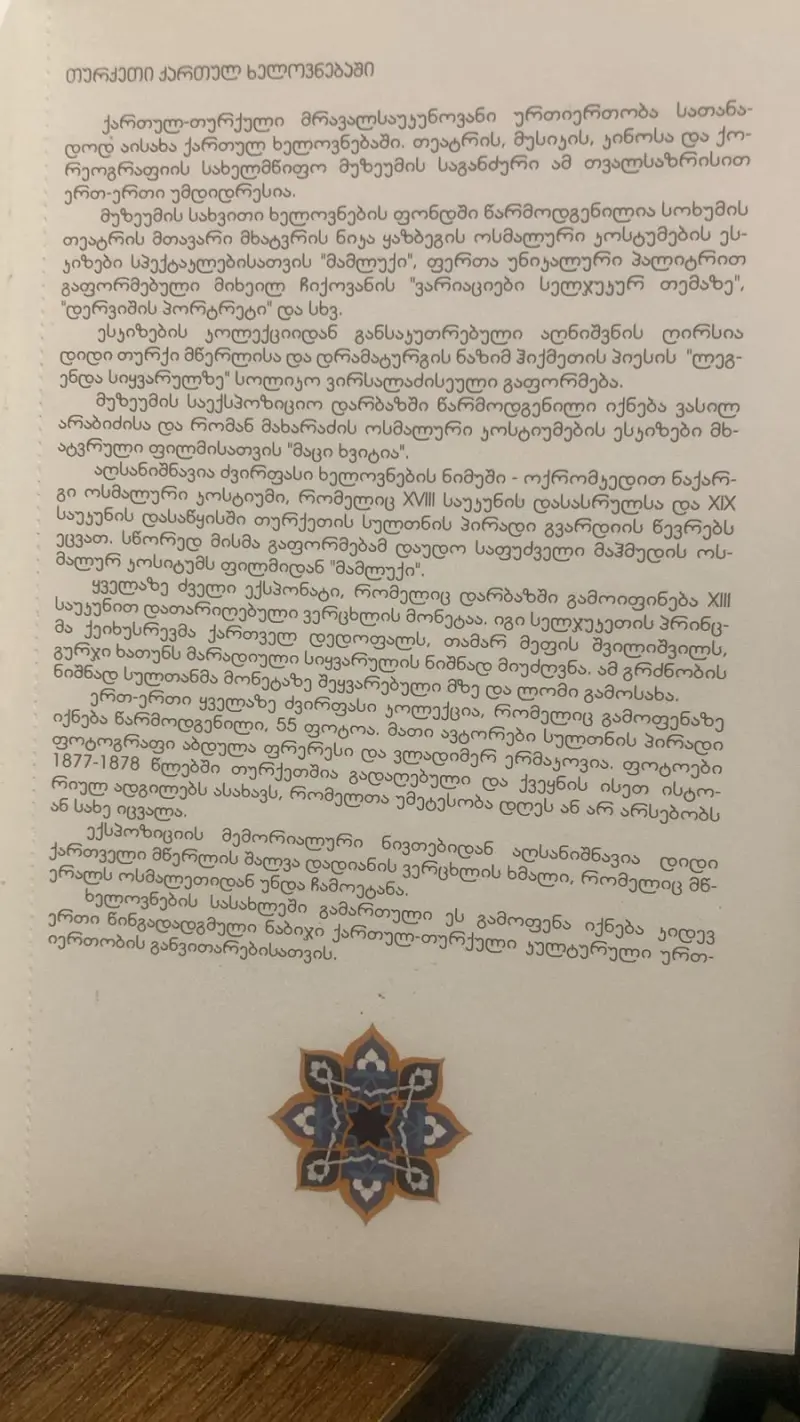 თურქეთი ქართულ ხელოვნებაში
ქართულ-თურქული მრავალსაუკუნოვანი ურთიერთობა სათანა-
დოდ აისახა ქართულ ხელოვნებაში. თეატრის, მუსიკის, კინოსა და ქო-
რეოგრაფიის სახელმწიფო მუზეუმის საგანძური ამ თვალსაზრისით
ერთ-ერთი უმდიდრესია.
მუზეუმის სახვითი ხელოვნების ფონდში წარმოდგენილია სოხუმის
თეატრის მთავარი მხატვრის ნიკა ყაზბეგის ოსმალური კოსტუმების ეს-
კიზები სპექტაკლებისათვის "მამლუქი", ფერთა უნიკალური პალიტრით
გაფორმებული მიხეილ ჩიქოვანის "ვარიაციები სელჯუკურ თემაზე",
"დერვიშის პორტრეტი" და სხვ.
ესკიზების კოლექციიდან განსაკუთრებული აღნიშვნის ღირსია
დიდი თურქი მწერლისა და დრამატურგის ნაზიმ ჰიქმეთის პიესის "ლეგ-
ენდა სიყვარულზე" სოლიკო ვირსალაძისეული გაფორმება.
მუზეუმის საექსპოზიციო დარბაზში წარმოდგენილი იქნება ვასილ
არაბიძისა და რომან მახარაძის ოსმალური კოსტიუმების ესკიზები მხ-
ატვრული ფილმისათვის "მაცი ხვიტია".
აღსანიშნავია ძვირფასი ხელოვნების ნიმუში - ოქრომკედით ნაქარ-
გი ოსმალური კოსტიუმი, რომელიც XVIII საუკუნის დასასრულსა და XIX
საუკუნის დასაწყისში თურქეთის სულთნის პირადი გვარდიის წევრებს
ეცვათ. სწორედ მისმა გაფორმებამ დაუდო საფუძველი მაჰმუდის ოს-
მალურ კოსიტუმს ფილმიდან "მამლუქი".
ყველაზე ძველი ექსპონატი, რომელიც დარბაზში გამოიფინება XIII
საუკუნით დათარიღებული ვერცხლის მონეტაა. იგი სელჯუკეთის პრინც-
მა ქეიხუსრევმა ქართველ დედოფალს, თამარ მეფის შვილიშვილს,
გურჯი ხათუნს მარადიული სიყვარულის ნიშნად მიუძღვნა. ამ გრძნობის
ნიშნად სულთანმა მონეტაზე შეყვარებული მზე და ლომი გამოსახა.
ერთ-ერთი ყველაზე ძვირფასი კოლექცია, რომელიც გამოფენაზე
იქნება წარმოდგენილი, 55 ფოტოა. მათი ავტორები სულთნის პირადი
ფოტოგრაფი აბდულა ფრერესი და ვლადიმერ ერმაკოვია. ფოტოები
1877-1878 წლებში თურქეთშია გადაღებული და ქვეყნის ისეთ ისტო-
რიულ ადგილებს ასახავს, რომელთა უმეტესობა დღეს ან არ არსებობს
ან სახე იცვალა.
ექსპოზიციის მემორიალური ნივთებიდან აღსანიშნავია დიდი
ქართველი მწერლის შალვა დადიანის ვერცხლის ხმალი, რომელიც მწ-
ერალს ოსმალეთიდან უნდა ჩამოეტანა.
ხელოვნების სასახლეში გამართული ეს გამოფენა იქნება კიდევ
ერთი წინგადადგმული ნაბიჯი ქართულ-თურქული კულტურული ურთ-
იერთობის განვითარებისათვის.